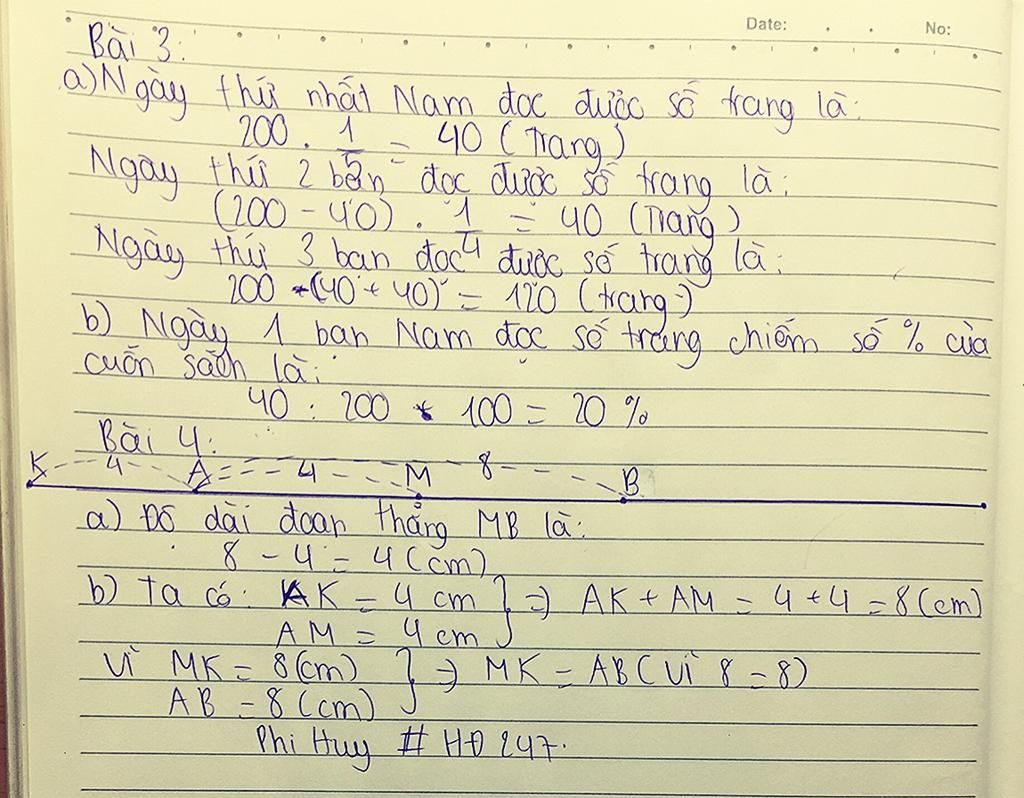 Date: No:
Bài 3:
a) Ngày thứ nhất Nam đọc được số trang là:
200 . 1/5 = 40 (Trang)
Ngày thứ 2 bạn đọc được số trang là:
(200 - 40) . 1/4 = 40 (Trang)
Ngày thứ 3 bạn đọc được số trang là:
200 - (40 + 40) = 120 (trang)
b) Ngày 1 bạn Nam đọc số trang chiếm số % của
cuốn sách là:
40 : 200 * 100 = 20 %
Bài 4:
K 4 A 4 M 8 B
a) Độ dài đoạn thẳng MB là:
8 - 4 = 4 (cm)
b) Ta có: AK = 4 cm } => AK + AM = 4 + 4 = 8 (cm)
AM = 4 cm
Vì MK = 8 (cm) } => MK = AB (Vì 8 = 8)
AB = 8 (cm)
Phi Huy # HĐ 247.